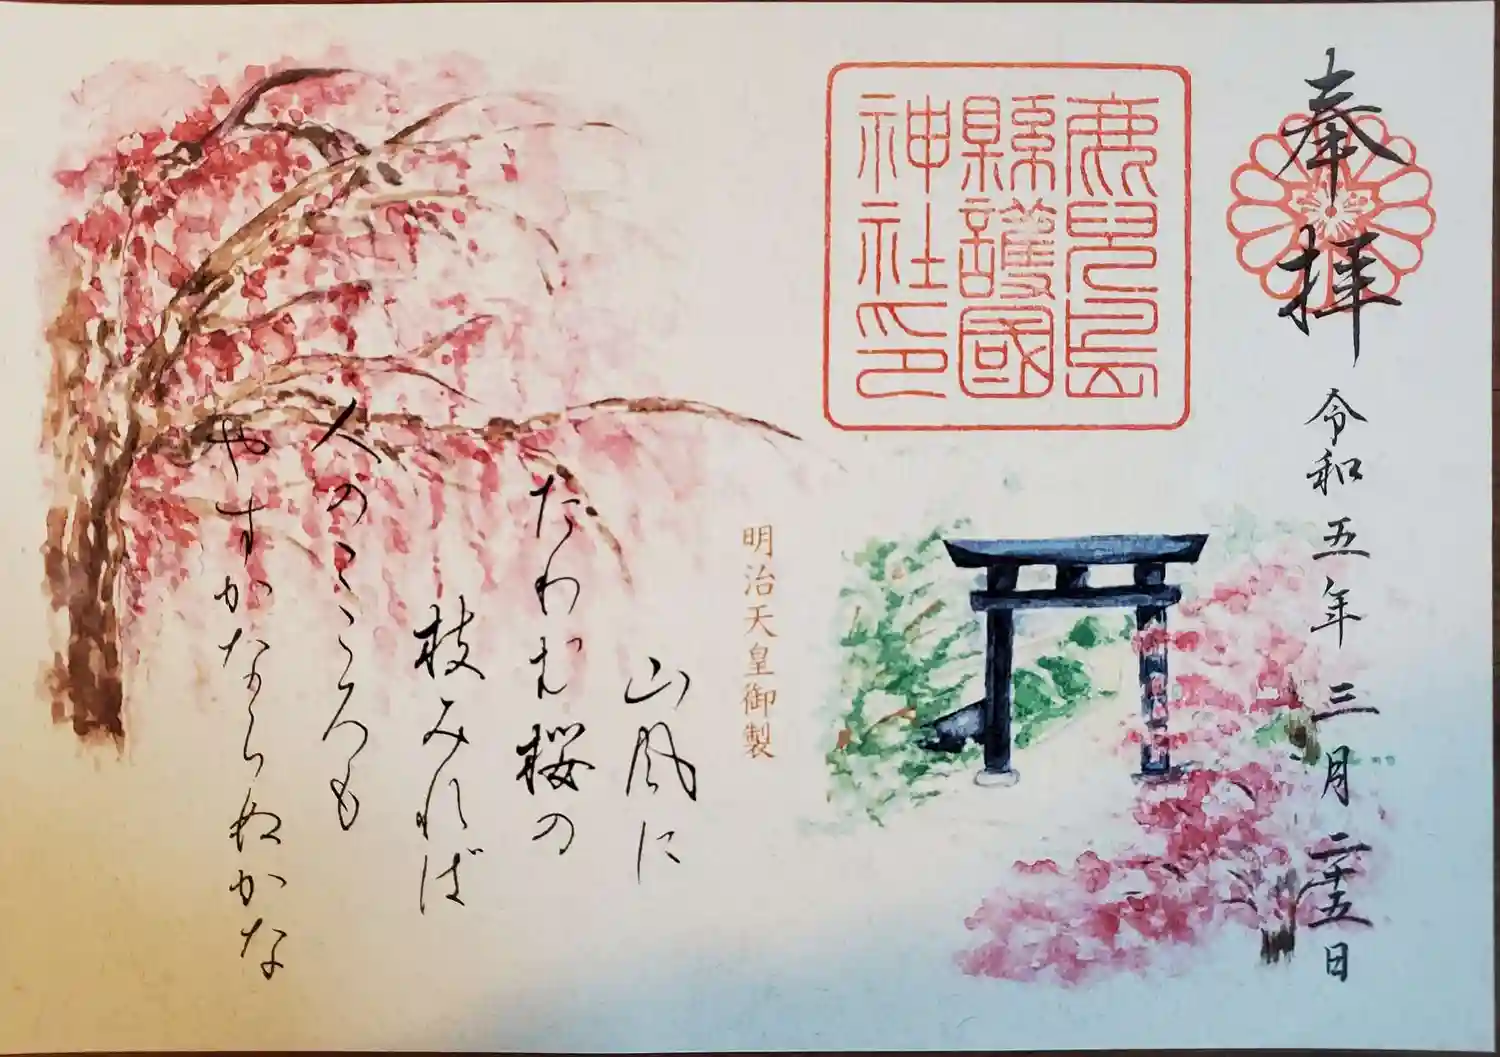 奉拝
令和五年三月二十五日
鹿児島
縣護國
神社印
明治天皇御製
山風に
たわむ桜の
枝みれば
人のこころも
やすかならぬかな